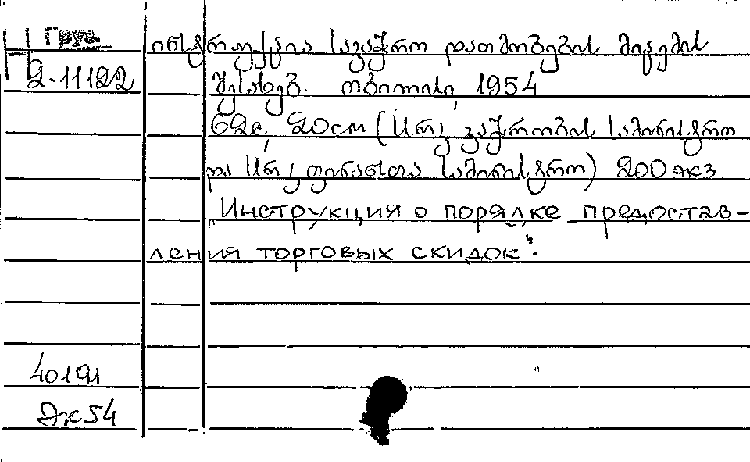 Груз
Н 2-11122
ინსტრუქცია სავაჭრო დათმობების მიცემის
შესახებ. თბილისი, 1954
62გ, 20см (სსრკ ვაჭრობის სამინისტრო
და სსრკ ფინანსთა სამინისტრო) 200 экз
"Инструкция о порядке предостав-
ления торговых скидок".
40191
Эх54